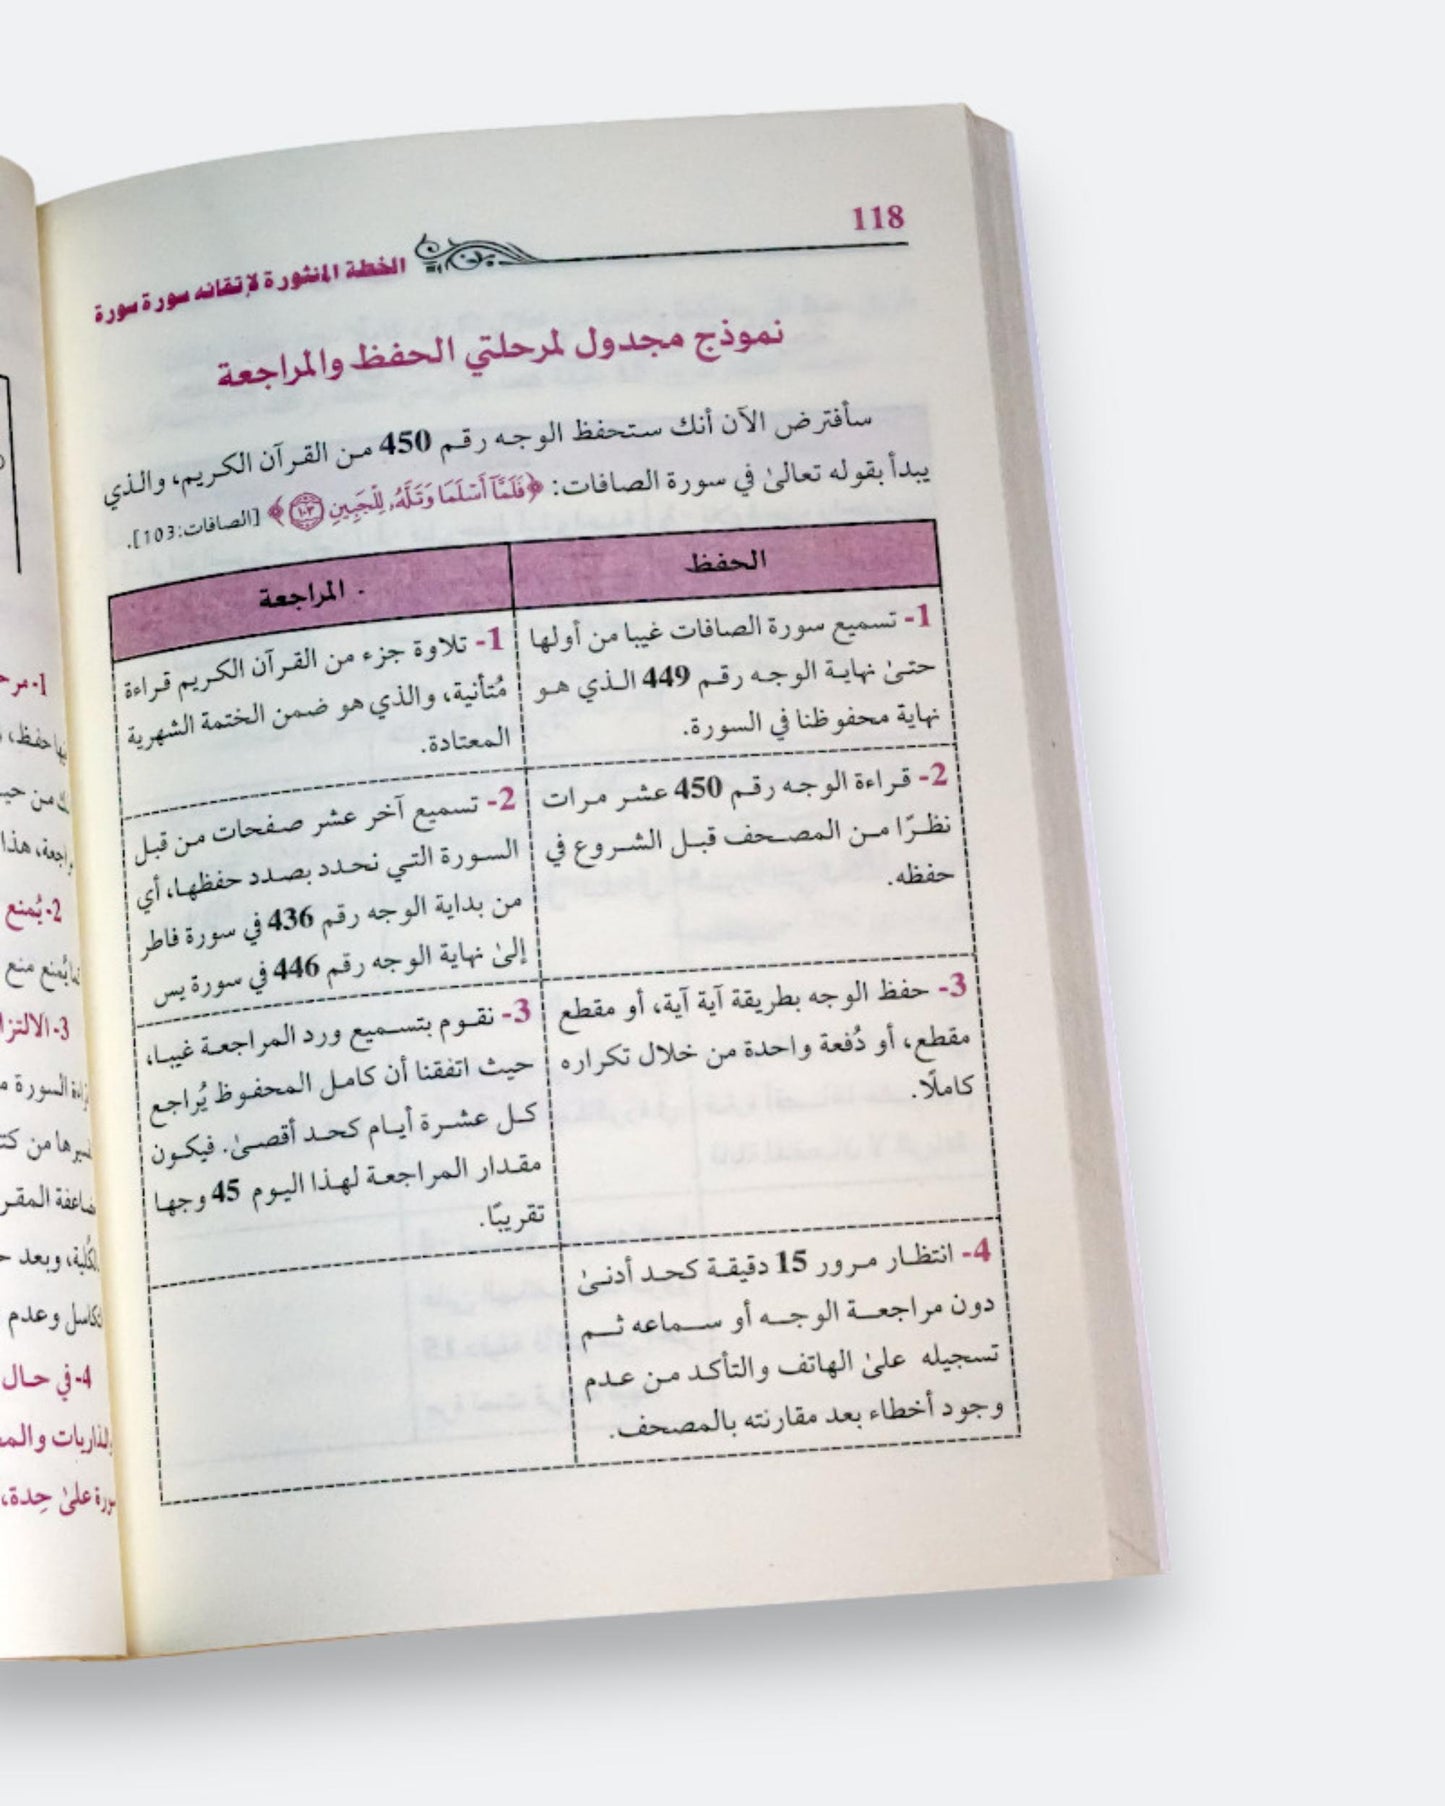 118
الخطة المنثورة لإتقانه سورة سورة
نموذج مجدول لمرحلتي الحفظ والمراجعة
سأفترض الآن أنك ستحفظ الوجه رقم 450 من القرآن الكريم، والذي
يبدأ بقوله تعالىٰ في سورة الصافات: ﴿فَلَمَّآ أَسْلَمَا وَتَلَّهُۥ لِلْجَبِينِ ١٠٣﴾ [الصافات:103].
الحفظ
1- تسميع سورة الصافات غيبا من أولها
حتىٰ نهاية الوجه رقم 449 الذي هو
نهاية محفوظنا في السورة.
2- قراءة الوجه رقم 450 عشر مرات
نظرًا من المصحف قبل الشروع في
حفظه.
3- حفظ الوجه بطريقة آية آية، أو مقطع
مقطع، أو دُفعة واحدة من خلال تكراره
كاملًا.
4- انتظار مرور 15 دقيقة كحد أدنىٰ
دون مراجعة الوجه أو سماعه ثم
تسجيله علىٰ الهاتف والتأكد من عدم
وجود أخطاء بعد مقارنته بالمصحف.
المراجعة
1- تلاوة جزء من القرآن الكريم قراءة
مُتأنية، والذي هو ضمن الختمة الشهرية
المعتادة.
2- تسميع آخر عشر صفحات من قبل
السورة التي نحدد بصدد حفظها، أي
من بداية الوجه رقم 436 في سورة فاطر
إلىٰ نهاية الوجه رقم 446 في سورة يس
3- نقوم بتسميع ورد المراجعة غيبا،
حيث اتفقنا أن كامل المحفوظ يُراجع
كل عشرة أيام كحد أقصىٰ. فيكون
مقدار المراجعة لهذا اليوم 45 وجها
تقريبًا.
حفظ،
من حيث
هذا
2- يُمنع
يُمنع منع
3-
السورة
من
المقر
وبعد
وعدم
4- في حال
والذاريات
سورة علىٰ حِدة،